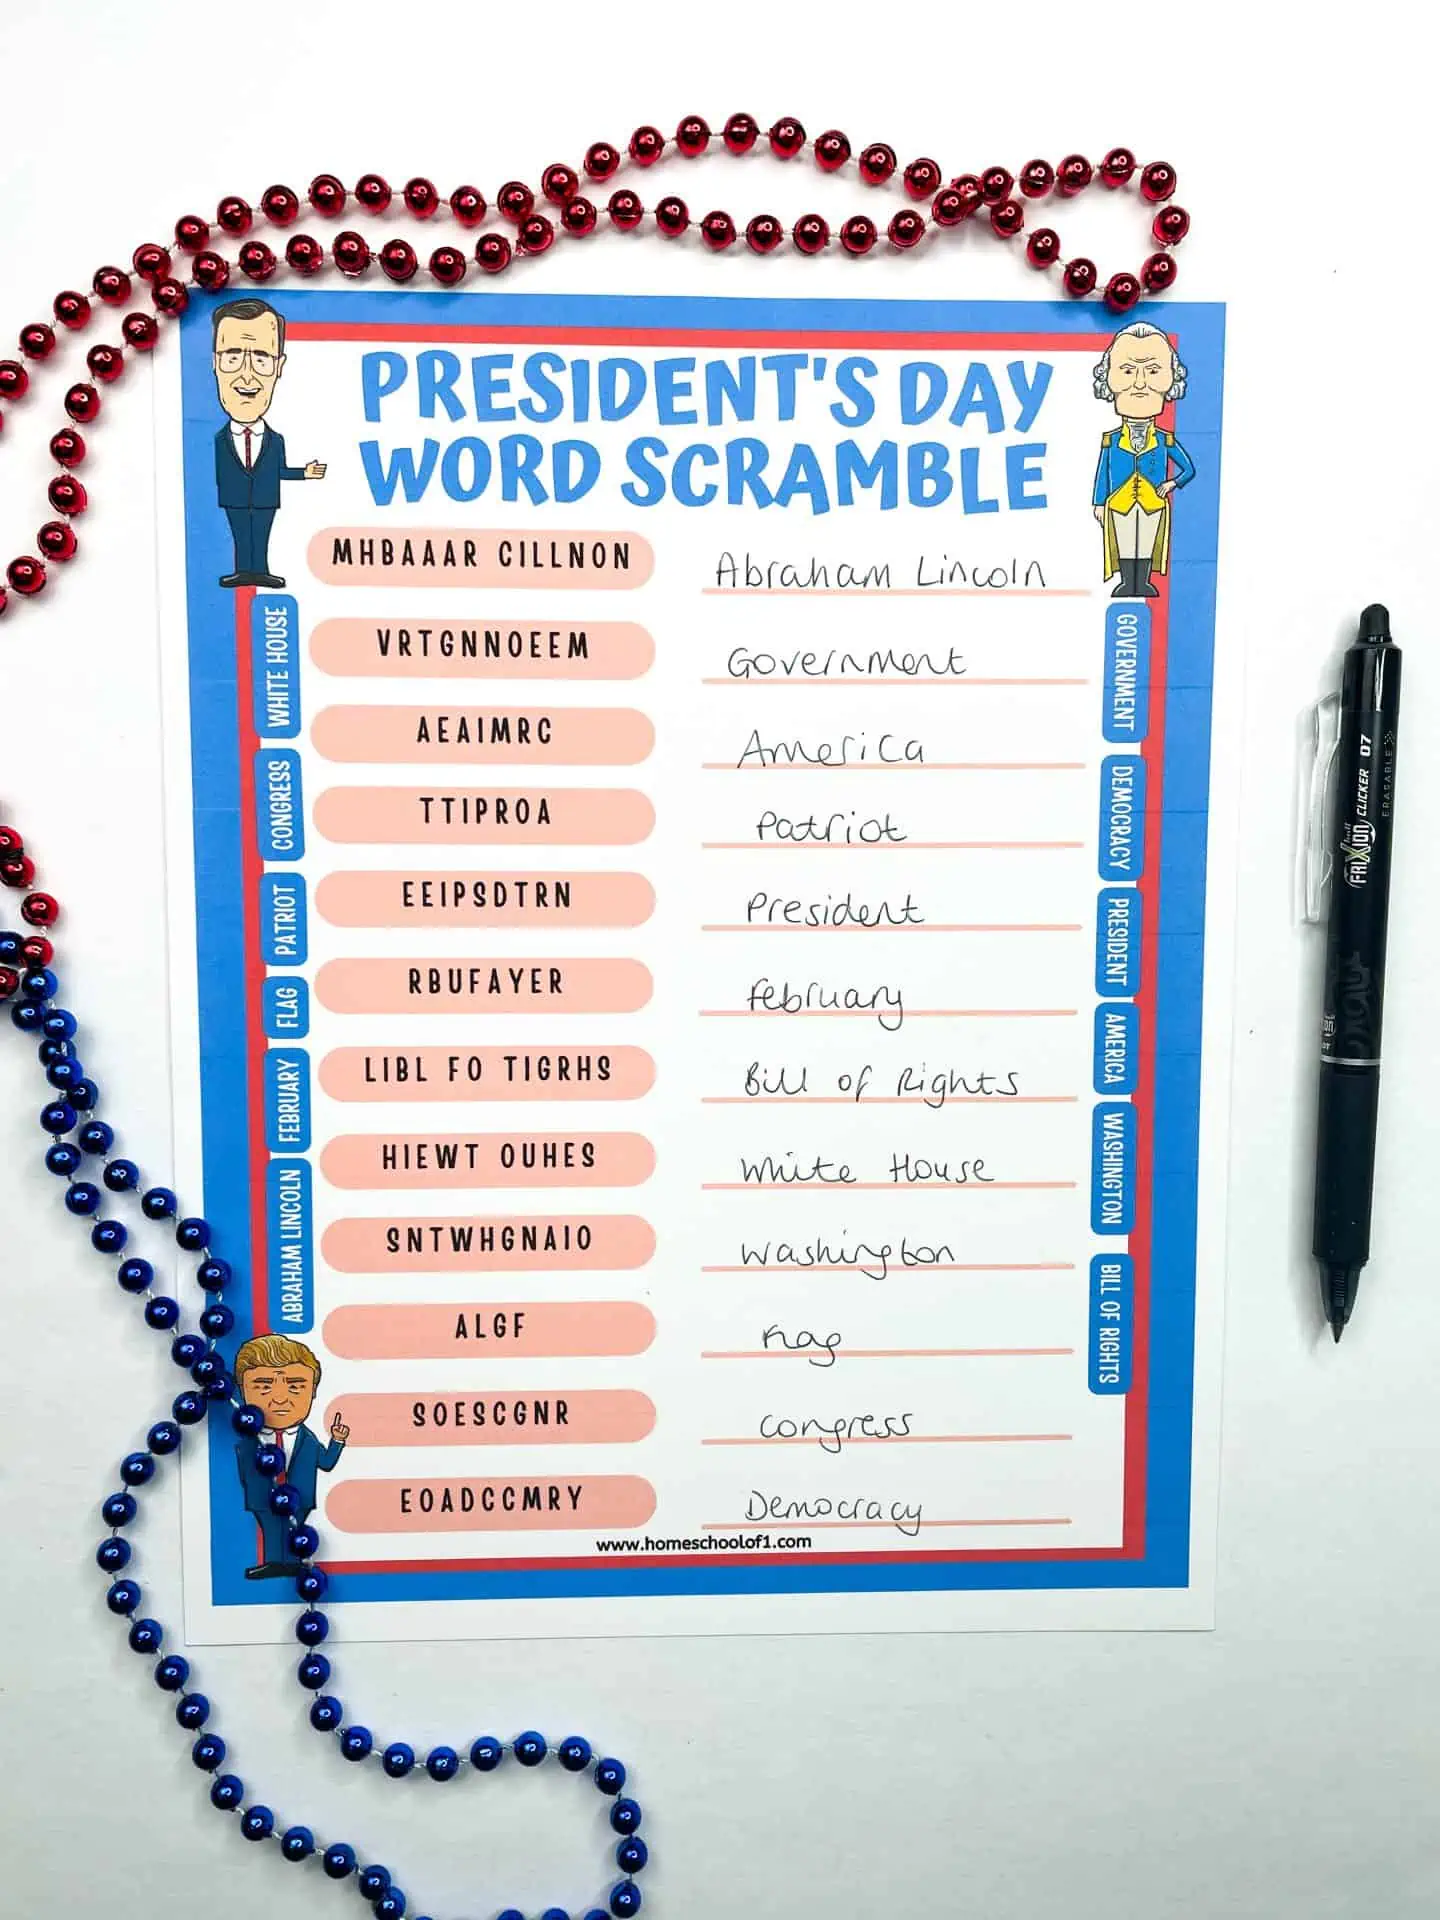 PRESIDENT'S DAY
WORD SCRAMBLE
MHBAAAR CILLNON
Abraham Lincoln
VRTGNNOEEM
Government
AEAIMRC
America
TTIPROA
Patriot
EEIPSDTRN
President
RBUFAYER
February
LIBL FO TIGRHS
Bill of Rights
HIEWT OUHES
White House
SNTWHGNAIO
Washington
ALGF
Flag
SOESCGNR
Congress
EOADCCMRY
Democracy
www.homeschoolof1.com
WHITE HOUSE
CONGRESS
PATRIOT
FLAG
FEBRUARY
ABRAHAM LINCOLN
GOVERNMENT
DEMOCRACY
PRESIDENT
AMERICA
WASHINGTON
BILL OF RIGHTS
FRIXION CLICKER 07
ERASABLE